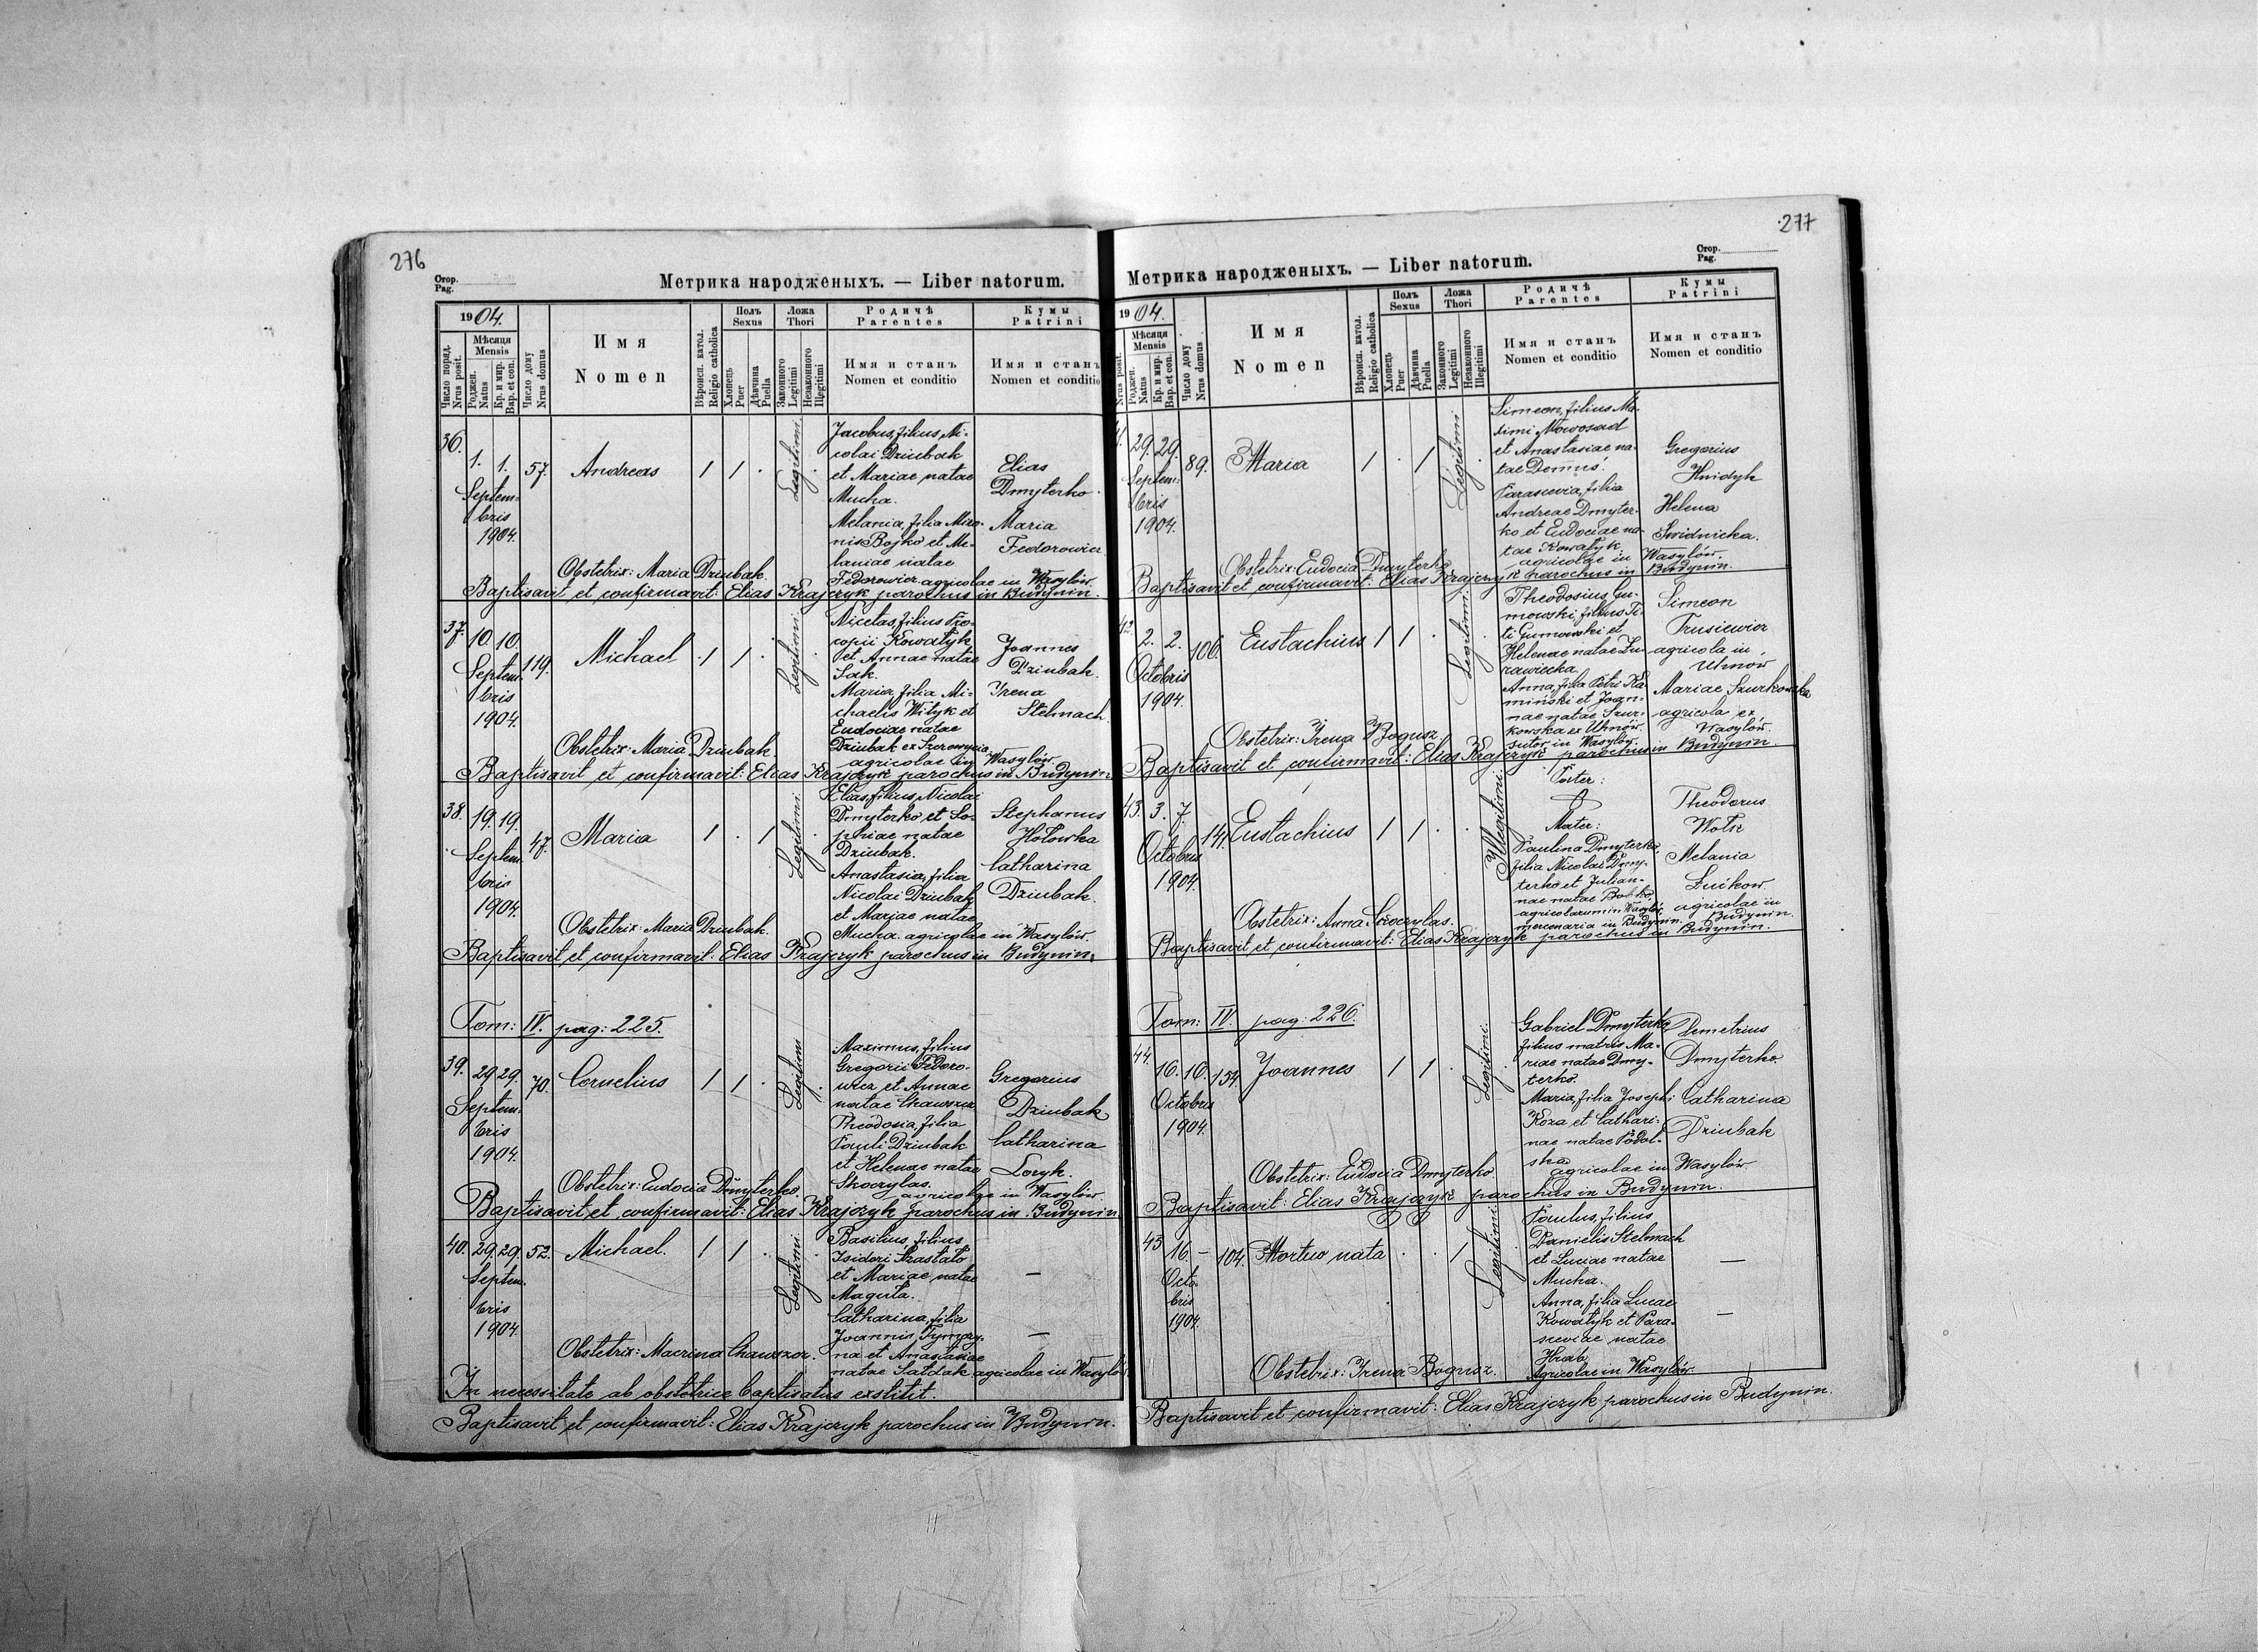 276
Стор.
Pag.
Метрика народженыхъ. — Liber natorum.
1904.
Число поряд.
Nrus posit.
Мѣсяця
Mensis
Роджен.
Natus
Кр. и мир.
Bap. et con.
Число дому
Nrus domus
Имя
Nomen
Вѣроисп. катол.
Religio catholica
Полъ
Sexus
Хлопець
Puer
Дѣвчина
Puella
Ложа
Thori
Законного
Legitimi
Незаконного
Illegitimi
Родичѣ
Parentes
Имя и станъ
Nomen et conditio
Кумы
Patrini
Имя и станъ
Nomen et conditio
36.
1. 1.
Septem-
bris
1904.
57.
Andreas
1 1 .
Legitimi.
Jacobus, filius Ni-
colai Dziubak
et Mariae natae
Mucha.
Melania, filia Miro-
nis Bojko et Me-
laniae natae
Fedorowicz agricolae in Wasylów.
Elias
Dmyterko.
Maria
Fedorowicz
Obstetrix: Maria Dziubak.
Baptisavit et confirmavit: Elias Krajczyk parochus in Budynin.
37.
10. 10.
Septem.
bris
1904.
119.
Michael
1 1 .
Legitimi.
Nicetas, filius Pro-
copii Kowatyk
et Annae natae
Sak.
Maria, filia Mi-
chaelis Wityk et
Eudociae natae
Dziubak ex
agricolae in Wasylów.
Joannes
Dziubak.
Irena
Stelmach.
Obstetrix: Maria Dziubak.
Baptisavit et confirmavit: Elias Krajczyk parochus in Budynin.
38.
19. 19.
Septem.
bris
1904.
47.
Maria
1 . 1
Legitimi.
Elias, filius Nicolai
Dmyterko et So-
phiae natae
Dziubak.
Anastasia, filia
Nicolai Dziubak
et Mariae natae
Mucha. agricolae in Wasylów.
Stephanus
Hołowka
Catharina
Dziubak.
Obstetrix: Maria Dziubak.
Baptisavit et confirmavit: Elias Krajczyk parochus in Budynin.
Tom: IV. pag: 225.
39.
29. 29.
Septem.
bris
1904.
70.
Cornelius
1 1 .
Legitimi
Maximus, filius
Gregorii Fedoro-
wicz et Annae
natae Chawszcz
Theodosia, filia
Pauli Dziubak
et Helenae natae
Skoczylas.
agricolae in Wasylów.
Gregorius
Dziubak
Catharina
Loryk.
Obstetrix: Eudocia Dmyterko.
Baptisavit et confirmavit: Elias Krajczyk parochus in Budynin.
40.
29. 29.
Septem.
bris
1904.
52.
Michael.
1 1 .
Legitimi.
Basilius, filius
Isidori
et Mariae natae
Maguta.
Catharina, filia
Joannis Tymczy-
na et Anastasiae
natae Sałdak agricolae in Wasylów
—
—
Obstetrix: Macrina Chawszcz.
In necessitate ab obstetrice baptisatus exstitit.
Baptisavit et confirmavit: Elias Krajczyk parochus in Budynin.
277
Стор.
Pag.
Метрика народженыхъ. — Liber natorum.
1904.
Nrus posit.
Мѣсяця
Mensis
Роджен.
Natus
Кр. и мир.
Bap. et con.
Число дому
Nrus domus
Имя
Nomen
Вѣроисп. катол.
Religio catholica
Полъ
Sexus
Хлопець
Puer
Дѣвчина
Puella
Ложа
Thori
Законного
Legitimi
Незаконного
Illegitimi
Родичѣ
Parentes
Имя и станъ
Nomen et conditio
Кумы
Patrini
Имя и станъ
Nomen et conditio
29. 29.
Septem:
bris
1904.
89.
Maria
1 . 1
Legitimi
Simeon, filius Ma-
ximi Nowosad
et Anastasiae na-
tae Demus.
Parascevia, filia
Andreae Dmyter-
ko et Eudociae na-
tae Kowatyk.
agricolae in Wasylów.
Gregorius
Hnidyk
Helena
Swidnicka.
Obstetrix: Eudocia Dmyterko
Baptisavit et confirmavit: Elias Krajczyk parochus in Budynin.
42.
2. 2.
Octobris
1904.
106.
Eustachius
1 1 .
Legitimi.
Theodosius Gu-
mowski, filius Ti-
ti Gumowski et
Helenae natae Zu-
rawiecka
Anna, filia Petri Ka-
miński et Joan-
nae natae Szur-
kowska ex Uhnów.
sutor in Wasylów.
Simeon
Trusiewicz
agricola in
Uhnów
Mariae Szurkowska
agricola ex
Wasylów.
Obstetrix: Irena Bogusz
Baptisavit et confirmavit: Elias Krajczyk parochus in Budynin.
43.
3. 7.
Octobris
1904.
141.
Eustachius
1 1 .
Illegitimi
Pater:
Mater:
Paulina Dmyterko,
filia Nicolai Dmy-
terko et Julian-
nae natae
agricolarum in Wasylów,
mercenaria in Budynin.
Theodorus
Wołk
Melania
Zuikow.
agricolae in
Budynin.
Obstetrix: Anna Skoczylas.
Baptisavit et confirmavit: Elias Krajczyk parochus in Budynin.
Tom: IV. pag: 226.
44.
16. 16.
Octobris
1904.
154.
Joannes
1 1 .
Legitimi.
Gabriel Dmyterko
filius matris Ma-
riae natae Dmy-
terko.
Maria, filia Josephi
Koza et Cathari-
nae natae Podol-
ska
agricolae in Wasylów
Demetrius
Dmyterko
Catharina
Dziubak
Obstetrix: Eudocia Dmyterko
Baptisavit: Elias Krajczyk parochus in Budynin.
45
16. —
Octo-
bris
1904.
104.
Mortuo nata
. . 1
Legitimi.
Paulus, filius
Danielis Stelmach
et Luciae natae
Mucha.
Anna, filia Lucae
Kowatyk et Para-
sceviae natae
Hrab
Agricolae in Wasylów.
—
—
Obstetrix: Irena Bogusz.
Baptisavit et confirmavit: Elias Krajczyk parochus in Budynin.